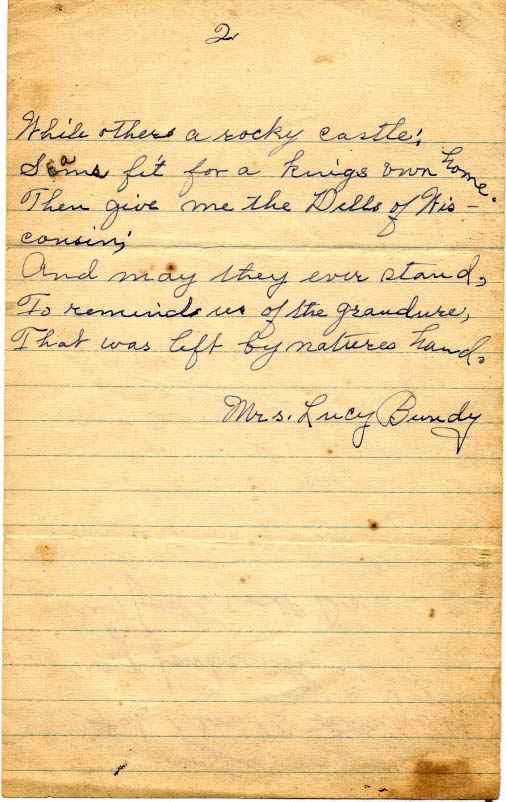 2
While others a rocky castle;
fit for a kings own home.
Then give me the Dells of Wis-
consin;
And may they ever stand,
To reminds us of the grandure,
That was left by natures hand.
Mrs. Lucy Bundy